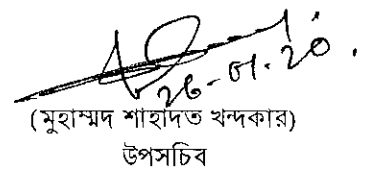 26-01-20.
(মুহাম্মদ শাহাদত খন্দকার)
উপসচিব